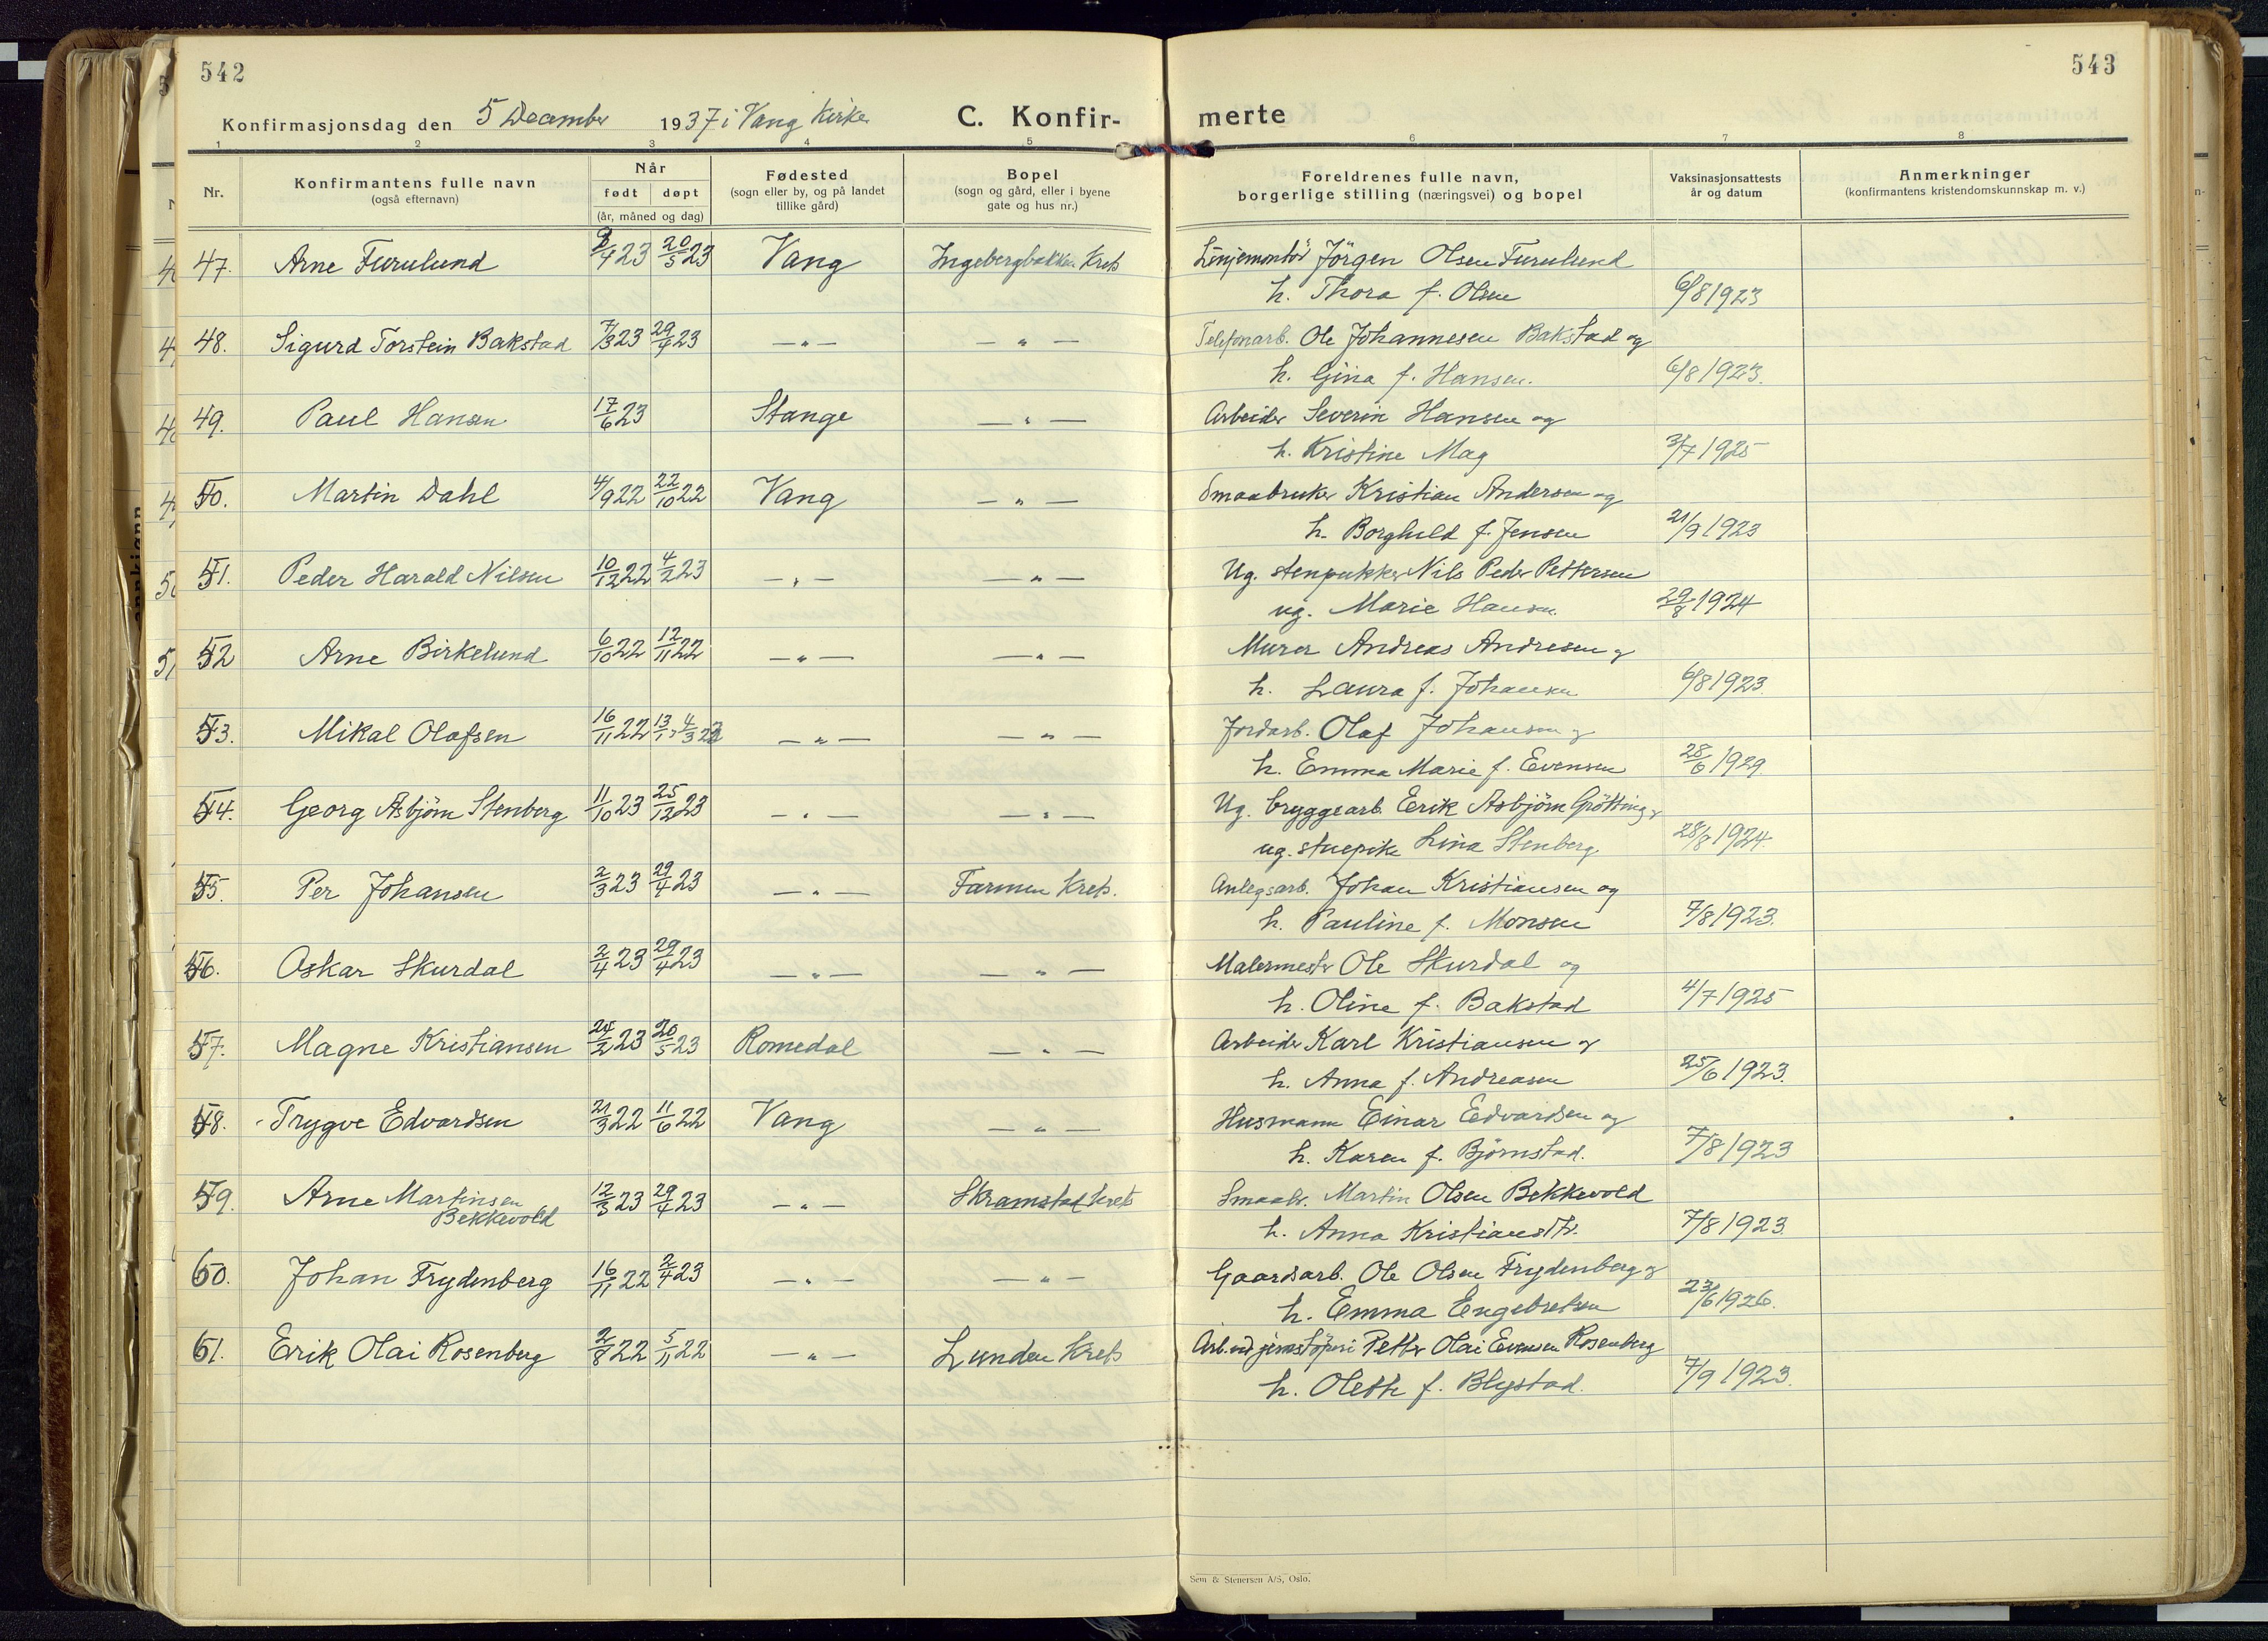 542
543
Konfirmasjonsdag den 5 December 1937 i Vang Kirke C. Konfir- merte
1 2 3 4 5 6 7 8
Nr. Konfirmantens fulle navn (også efternavn) Når født døpt (år, måned og dag) Fødested (sogn eller by, og på landet tillike gård) Bopel (sogn og gård, eller i byene gate og hus nr.) Foreldrenes fulle navn, borgerlige stilling (næringsvei) og bopel Vaksinasjonsattests år og datum Anmerkninger (konfirmantens kristendomskunnskap m. v.)
47. Arne Furulund 4 23 20/5 23 Vang Ingebergbakken Krets Linjemontör Jörgen Olsen Furulund
h. Thora f. Olsen 6/8 1923
48. Sigurd Torstein Bakstad 7/3 23 29/4 23 —"— —"— Telefonarb. Ole Johannesen Bakstad og
h. Gina f. Hansen. 6/8 1923.
49. Paul Hansen 17/6 23 Stange —"— Arbeider Severin Hansen og
h. Kristine Mag 3/7 1925
50. Martin Dahl 4/9 22 22/10 22 Vang —"— Smaabruker Kristian Andersen og
h. Borghild f. Jensen 21/9 1923
51. Peder Harald Nilsen 10/12 22 4/2 23 —"— —"— Ug. stenpukker Nils Peder Pettersen
ug. Marie Hansen 29/8 1924
52 Arne Birkelund 6/10 22 12/11 22 —"— —"— Murer Andreas Andresen og
h. Laura f. Johansen 6/8 1923.
53. Mikal Olafsen 16/11 22 13/1 - 4/3 23 —"— —"— Jordarb. Olaf Johansen og
h. Emma Marie f. Evensen 28/6 1929
54. Georg Asbjörn Stenberg 11/10 23 25/12 23 —"— —"— Ug. bryggearb. Erik Asbjörn Grötting og
ug. stuepike Lina Stenberg 28/8 1924
55. Per Johansen 2/3 23 29/4 23 —"— Farmen Krets. Anlegsarb. Johan Kristiansen og
h. Pauline f. Monsen 7/8 1923.
56. Oskar Skurdal 2/4 23 29/4 23 —"— —"— Malermester Ole Skurdal og
h. Oline f. Bakstad 4/7 1925
57. Magne Kristiansen 24/2 23 20/5 23 Romedal —"— Arbeider Karl Kristiansen og
h. Anna f. Andreasen 25/6 1923.
58. Trygve Edvardsen 21/3 22 11/6 22 Vang —"— Husmann Einar Edvardsen og
h. Karen f. Björnstad. 7/8 1923
59. Arne Martinsen Bekkevold 12/3 23 29/4 23 —"— Skramstad Krets Smaabr. Martin Olsen Bekkevold
h. Anna Kristiansdtr. 7/8 1923.
60. Johan Frydenberg 16/11 22 2/4 23 —"— —"— Gaardsarb. Ole Olsen Frydenberg og
h. Emma Engebretsen 23/6 1926.
61. Erik Olai Rosenberg 2/8 22 5/11 22 —"— Lunden Krets Arb. ved jernstöperi Petter Olai Evensen Rosenberg
h. Olette f. Blystad. 7/9 1923.
Sem & Stenersen A/S, Oslo.